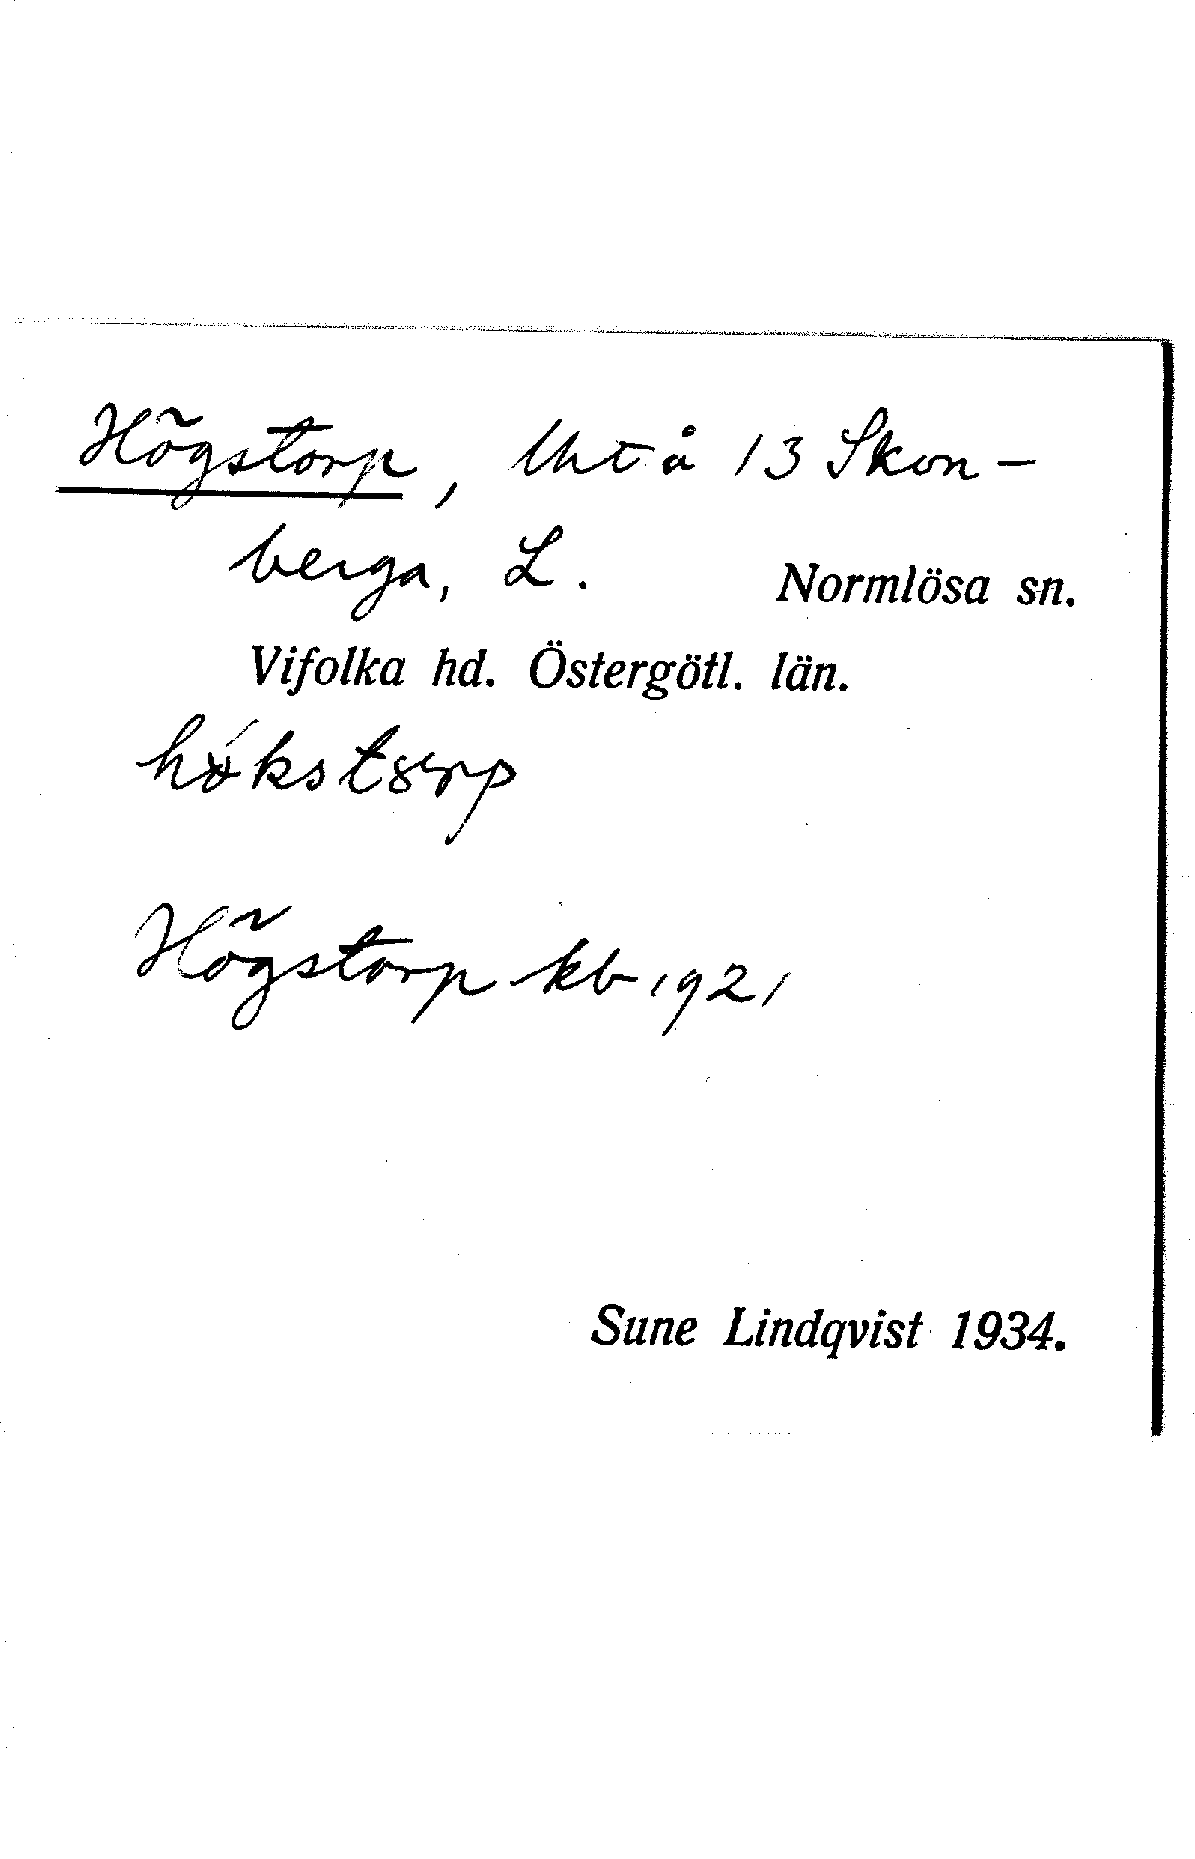 Högstorp, lht å 13 Skon-
berga, L. Normlösa sn.
Vifolka hd. Östergötl. län.
Högstorp kb 1921
Sune Lindqvist 1934.